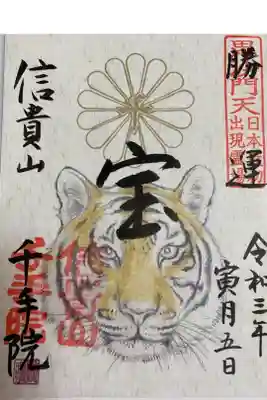 勝運
毘沙門天
日本
出現
宝
信貴山
千手院
令和三年
寅月五日